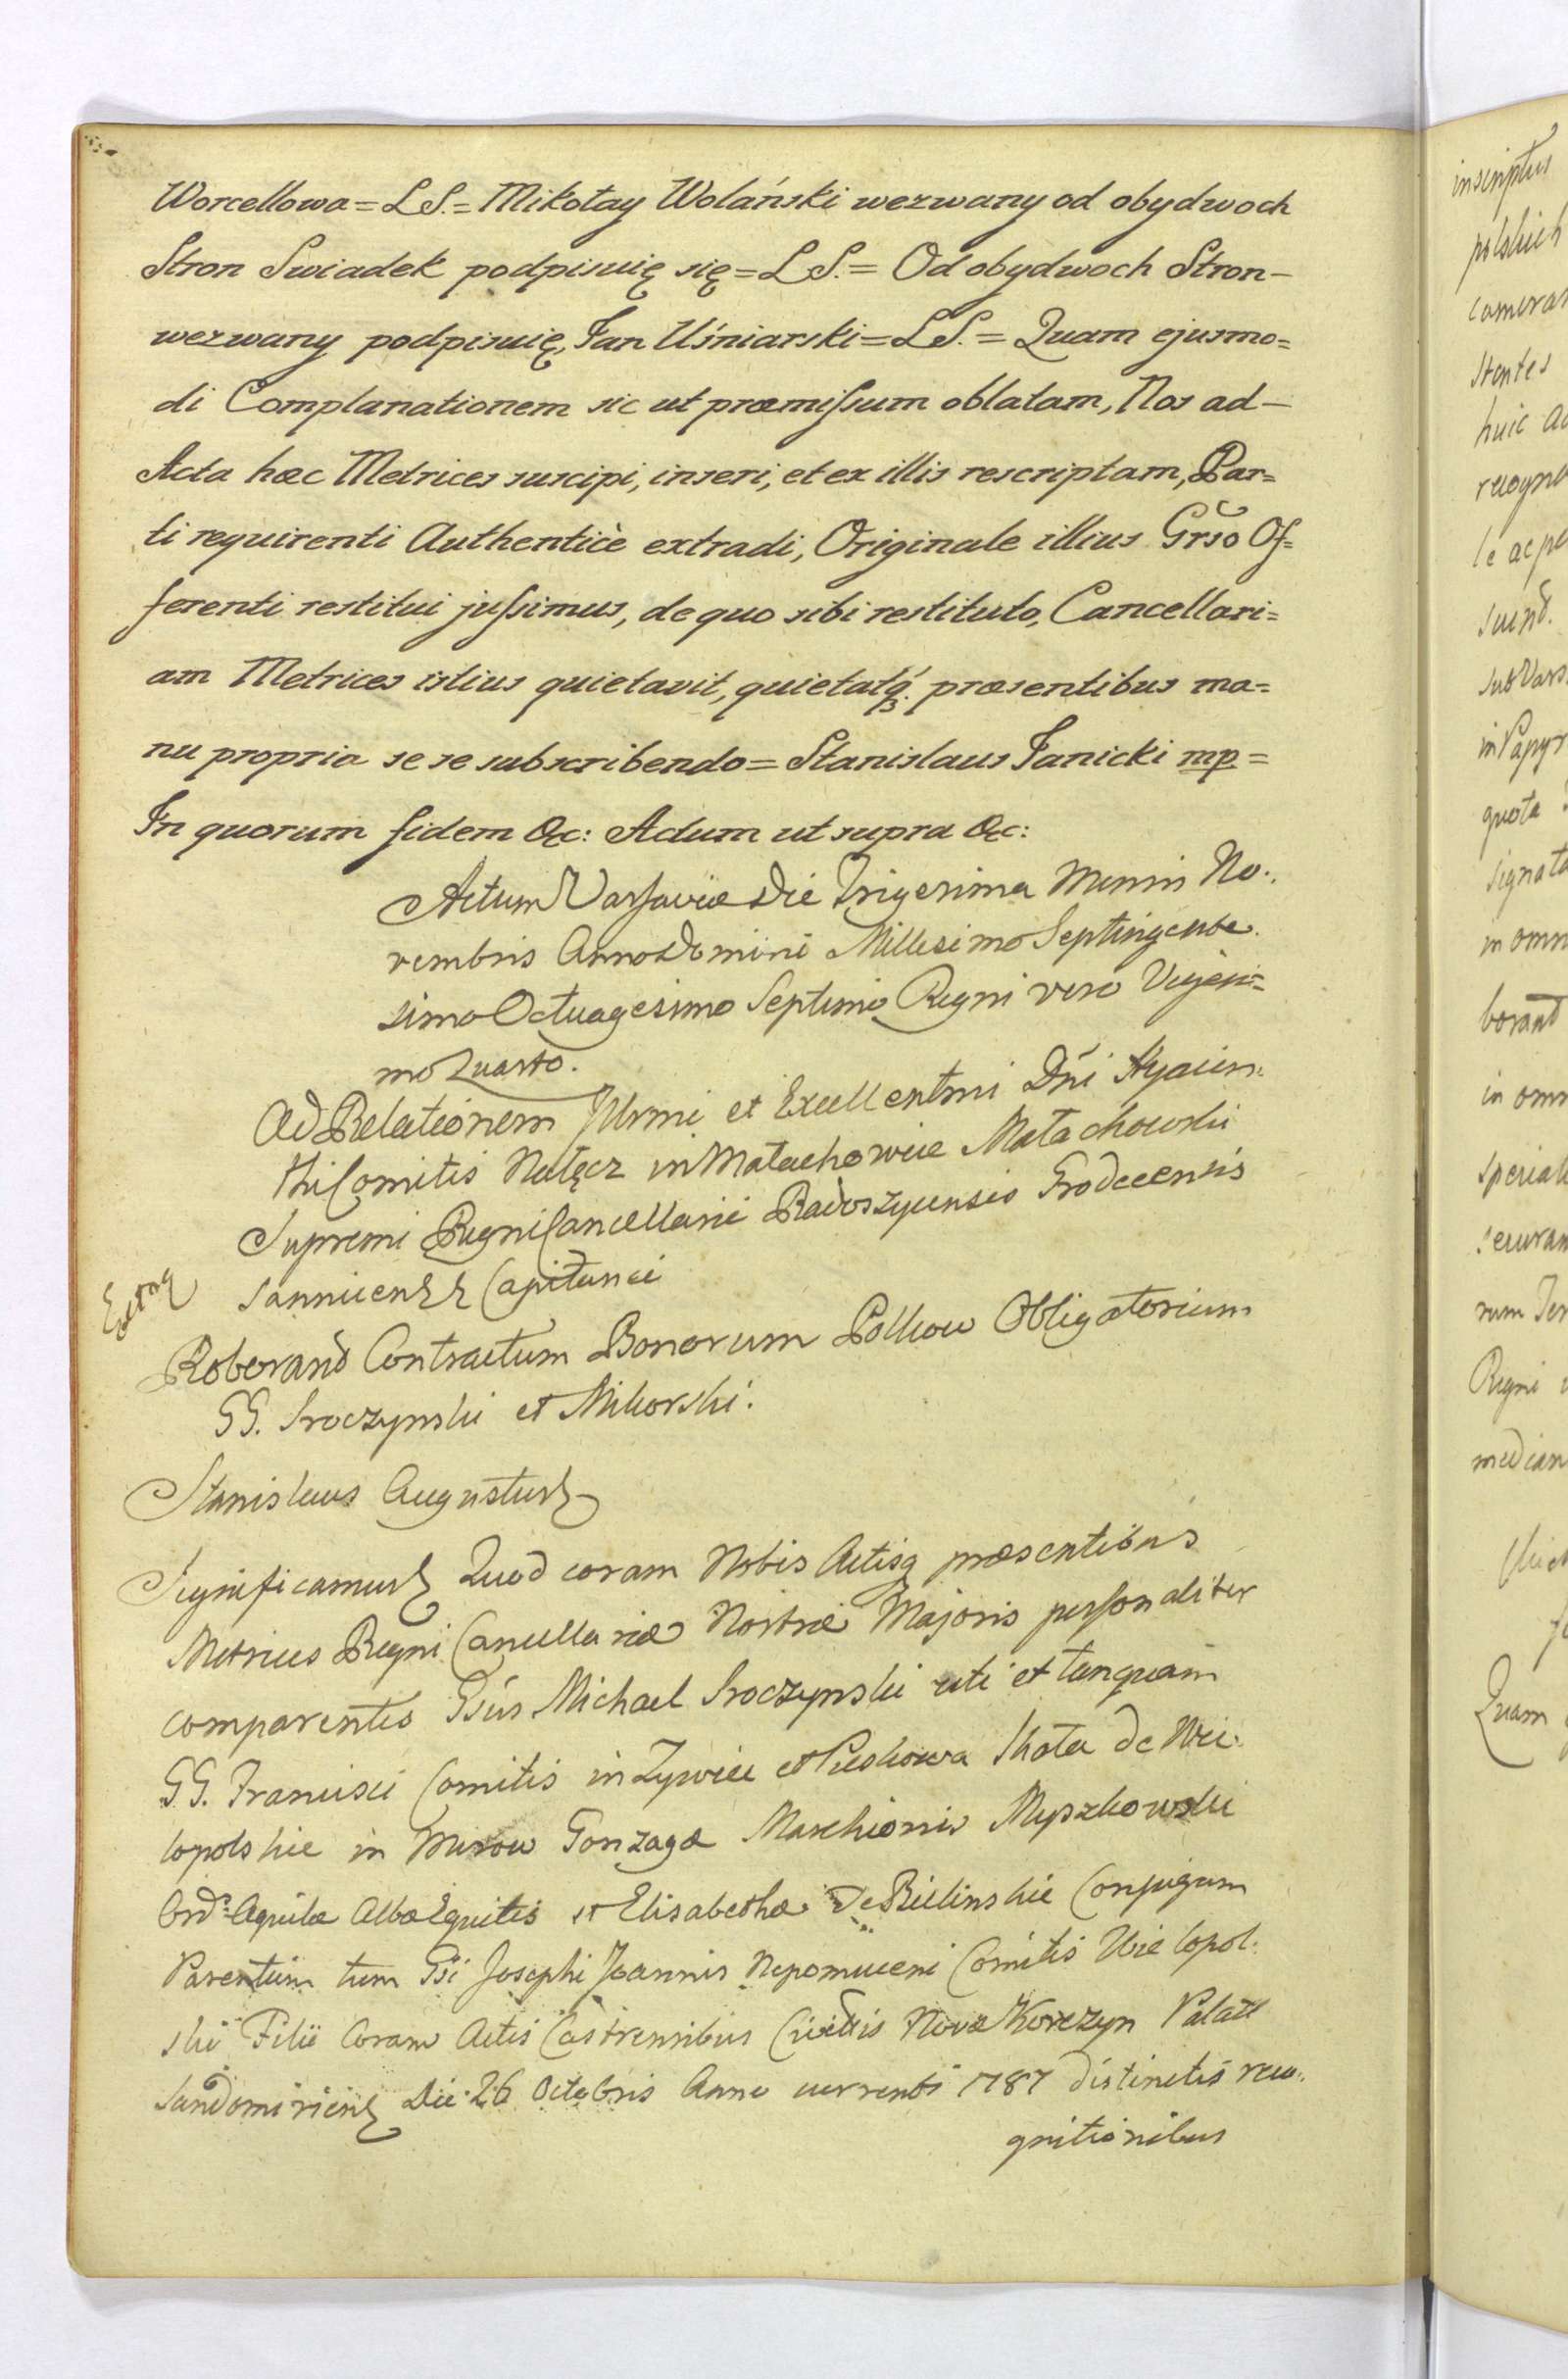 Worcellowa = L S. = Mikołay Wolański wezwany od obydwoch
Stron Swiadek podpisuię się = L S. = Od obydwoch Stron-
wezwany podpisuię, Jan Uśniarski = L S. = Quam ejusmo=
di Complanationem sic ut præmiſsum oblatam, Nos ad-
Acta hæc Metrices suscipi, inseri, et ex illis rescriptam, Par=
ti requirenti Authenticè extradi, Originale illius Grso Of=
ferenti restitui juſsimus, de quo sibi restituto, Cancellari=
am Metrices istius quietavit, quietatq́. præsentibus ma=
nu propria se se subscribendo = Stanislaus Janicki mp =
In quorum fidem &c: Actum ut supra &c:
Actum Varsaviæ Die Trigesima Mensis No.
vembris Anno Domini Millesimo Septingente.
simo Octuagesimo Septimo Regni vero Vigesi=
mo Quarto.
Ad Relationem Illrmi et Excellentmi Dńi Hyacin:
thi Comitis Nałęcz in Małachowice Małachowski
Supremi Regni Cancellarii Radoszycensis Grodecensis
Sannicens Capitanei
Extrag
Roborand Contractum Bonorum Polkow Obligatorium
GG. Sroczynski et Mikorski.
Stanislaus Augustus
Significamus Quod coram Nobis Actisq præsentibus
Metrices Regni Cancellariæ Nostræ Majoris perſonaliter
comparentes Gsus Michael Sroczynski uti et tanquam
GG. Francisci Comitis in Zywiec et Pieskowa Skała de Wie.
lopolskie in Mirow Gonzaga Marchionis Myszkowski
Ord: Aquilæ Albæ Equitis et Elisabethæ De Bielinskie Conjugum
Parentum tum Gsi Josephi Joannis Nepomuceni Comitis Wielopol.
ski Filii Coram Actis Castrensibus Civittis Novæ Korczyn Palatt
Sandomiriens Die 26 Octobris Anno currenti 1787 distinctis reco.
gnitionibus
inscriptus
polskich
cameras
stentes
huic
sub Vars
in Papyr
quota
signata
in omn
borand
in omn
special
securam
Regni
median
Quam